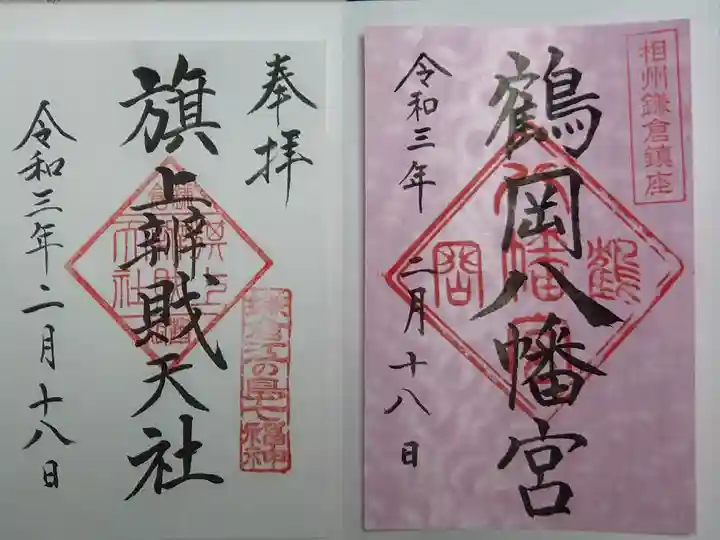 相州鎌倉鎮座
鶴岡八幡宮
鶴
八幡宮
岡
令和三年
二月十八日
奉拝
旗上辨財天社
鎌倉江の島七福神
令和三年二月十八日